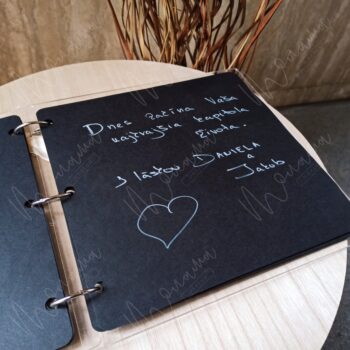 Dnes začína Vaša
najkrajšia kapitola
života.
S láskou DANIELA
a
Jakub